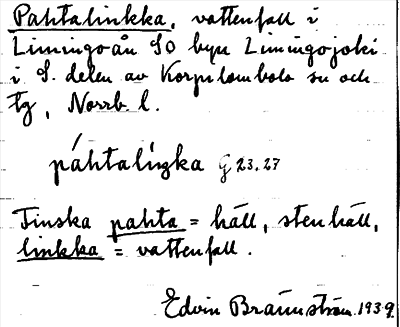 Pahtalinkka, vattenfall i
Limingoån SO byn Limingojoki
i S. delen av Korpilombolo sn och
tg, Norrb. l.
páhtalíŋka G 23.27
Finska pahta = häll, stenhäll,
linkka = vattenfall.
Edvin Brännström. 1939.